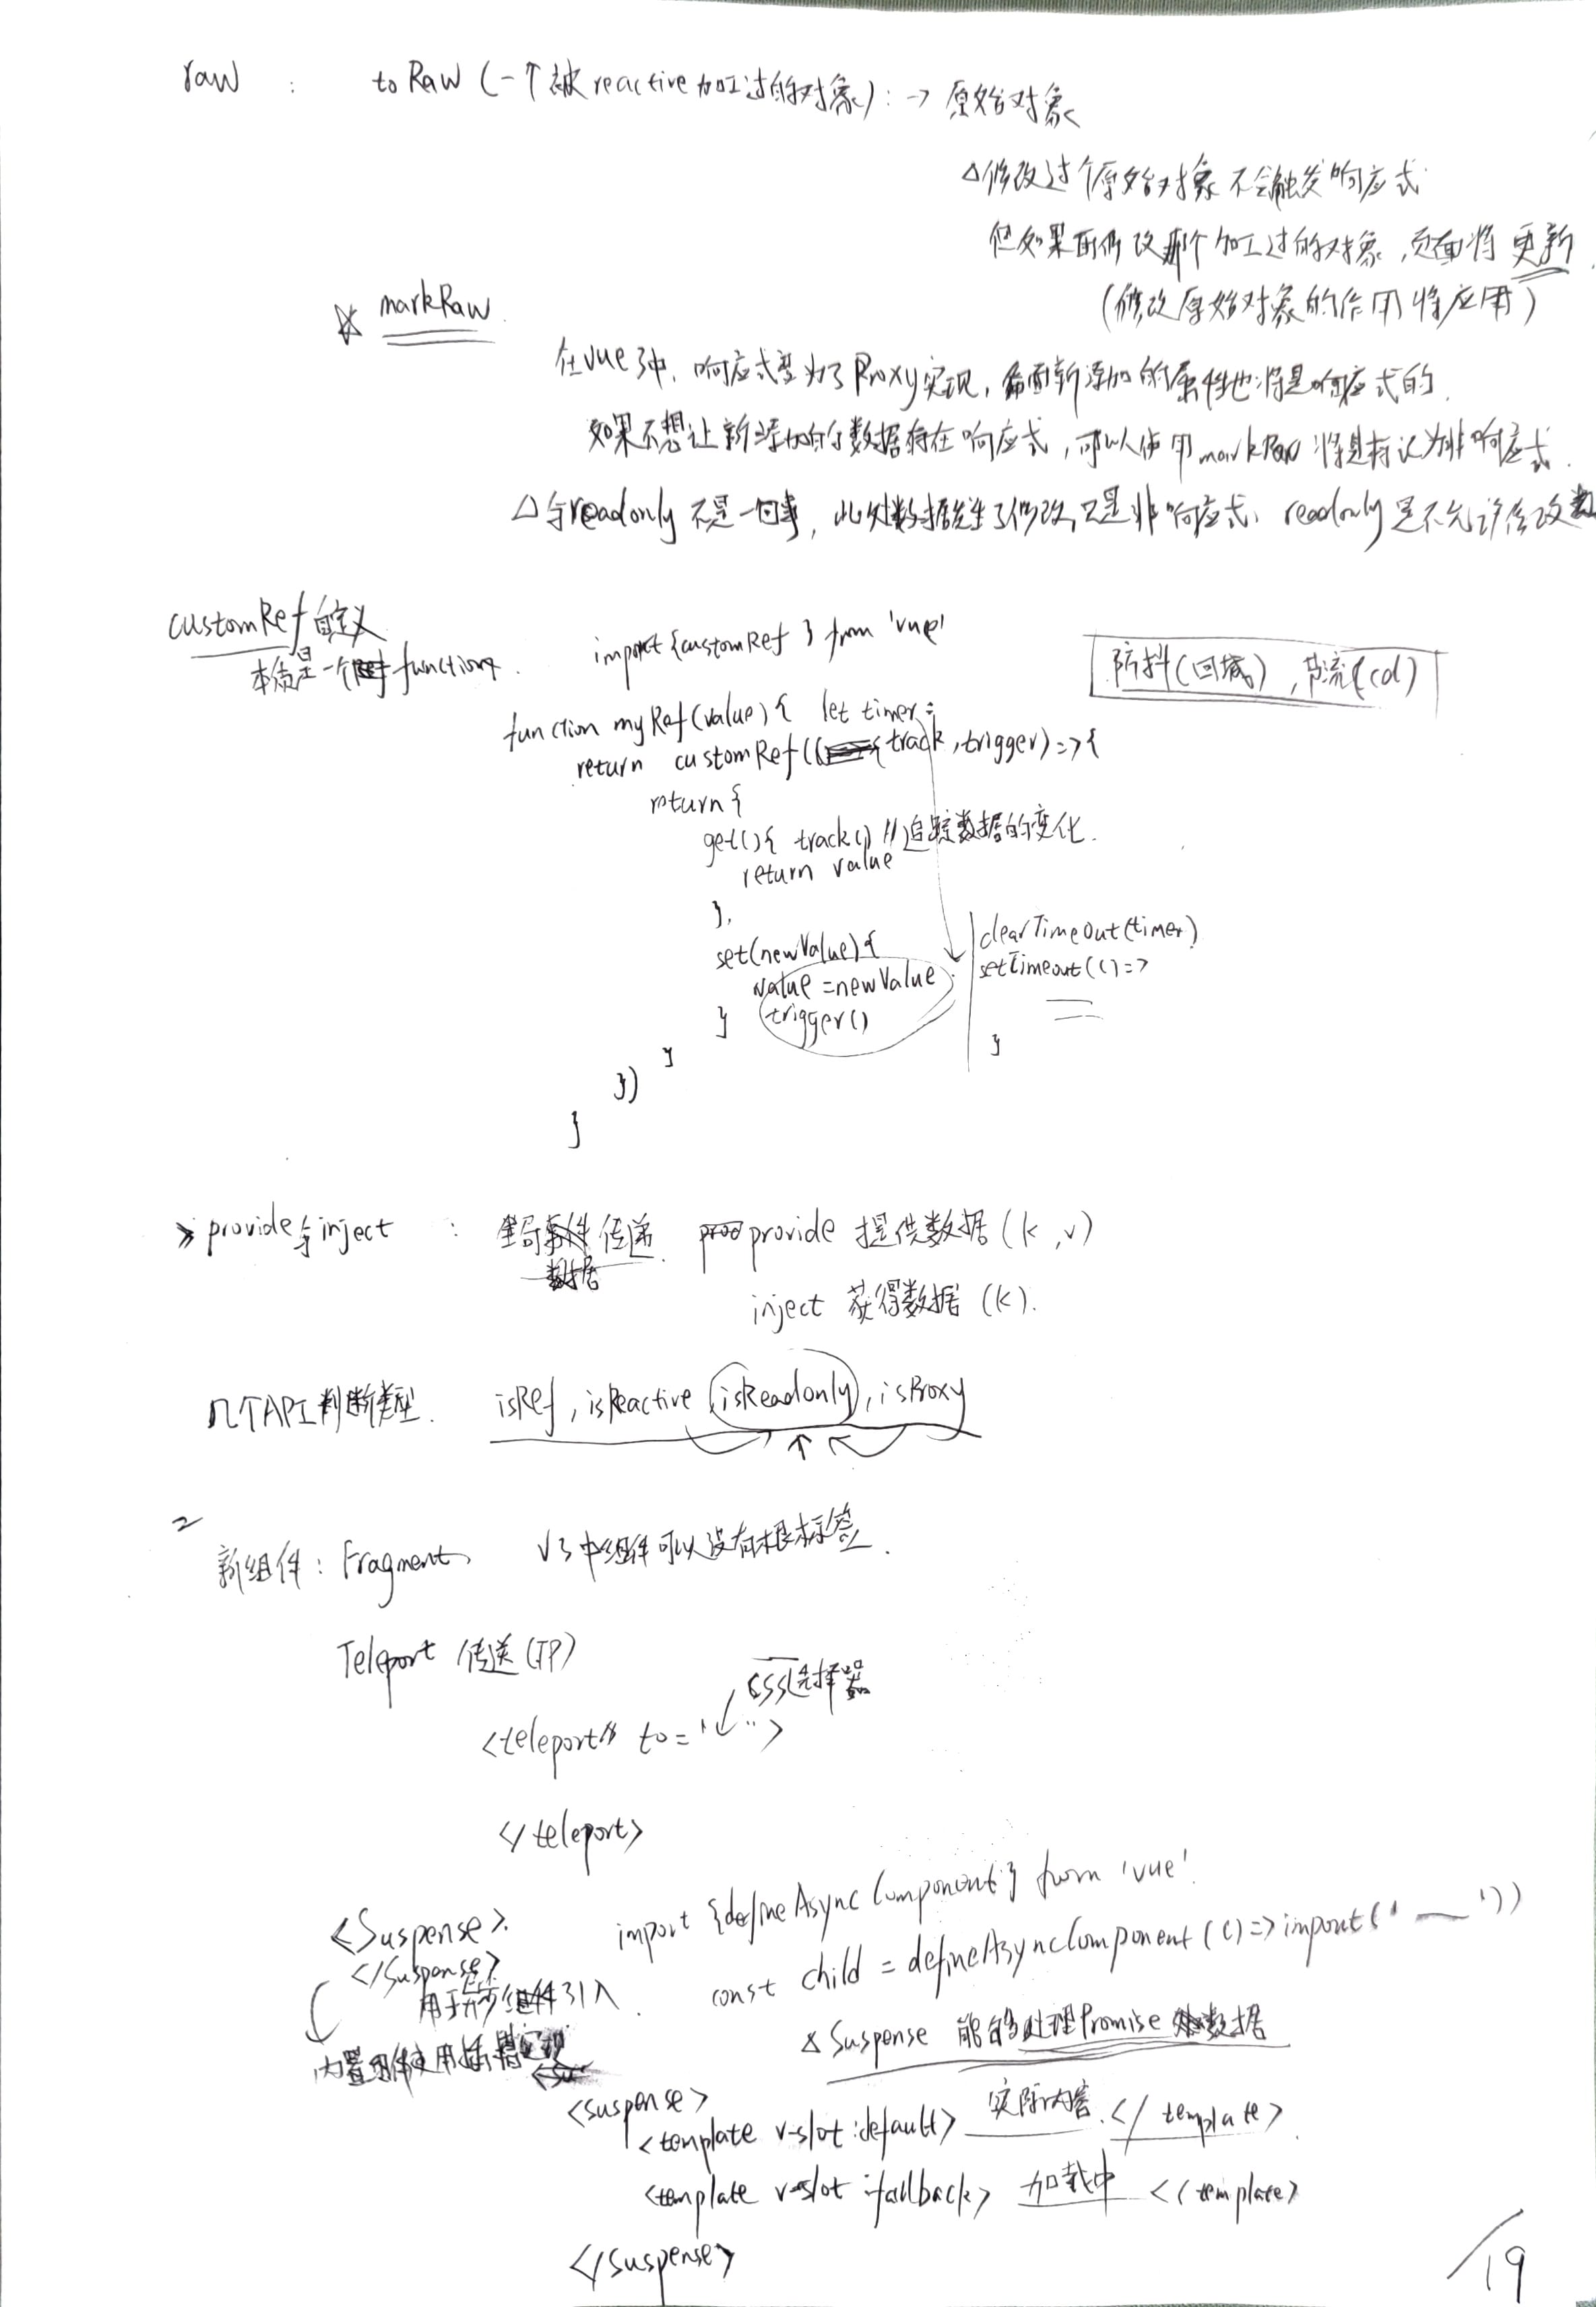 raw : toRaw (一个被reactive加工过的对象) : → 原始对象
△修改过个原始对象不会触发响应式
但如果再修改那个加工过的对象,页面将更新.
(修改原始对象的作用将应用)
☆ markRaw.
在vue3中,响应式变为了Proxy实现,后面新添加的属性也将是响应式的.
如果不想让新添加的数据存在响应式,可以使用markRaw将其标记为非响应式.
△与readonly不是一回事,此处数据发生了修改,只是非响应式,readonly是不允许修改
customRef自定义
本质是一个 function.
import {customRef } from 'vue'
防抖(回城),节流(cd)
function myRef(value){ let timer;
return customRef((track,trigger)=>{
return {
get(){ track() //追踪数据的变化.
return value
},
set(newValue){
value =newValue
trigger()
}
clearTimeOut(timer)
setTimeout(()=>
}
}
})
}
provide与inject : 传递 provide 提供数据(k,v)
数据
inject 获得数据 (k).
几个API判断类型. isRef,isReactive,isReadonly,isProxy
2
新组件: Fragment、 V3中组件可以没有根标签.
Teleport 传送(TP)
css选择器
<teleport to='..>
</teleport>
<Suspense>.
</Suspense>
用于异步组件引入.
内置组件使用插槽
import {defineAsyncComponent} from 'vue'.
const child = defineAsyncComponent(()=>import('__'))
△Suspense 能够处理Promise数据
<suspense>
<template v-slot:default> 实际内容.</template>.
<template v-slot:fallback> 加载中 <(template>
</suspense>
/19